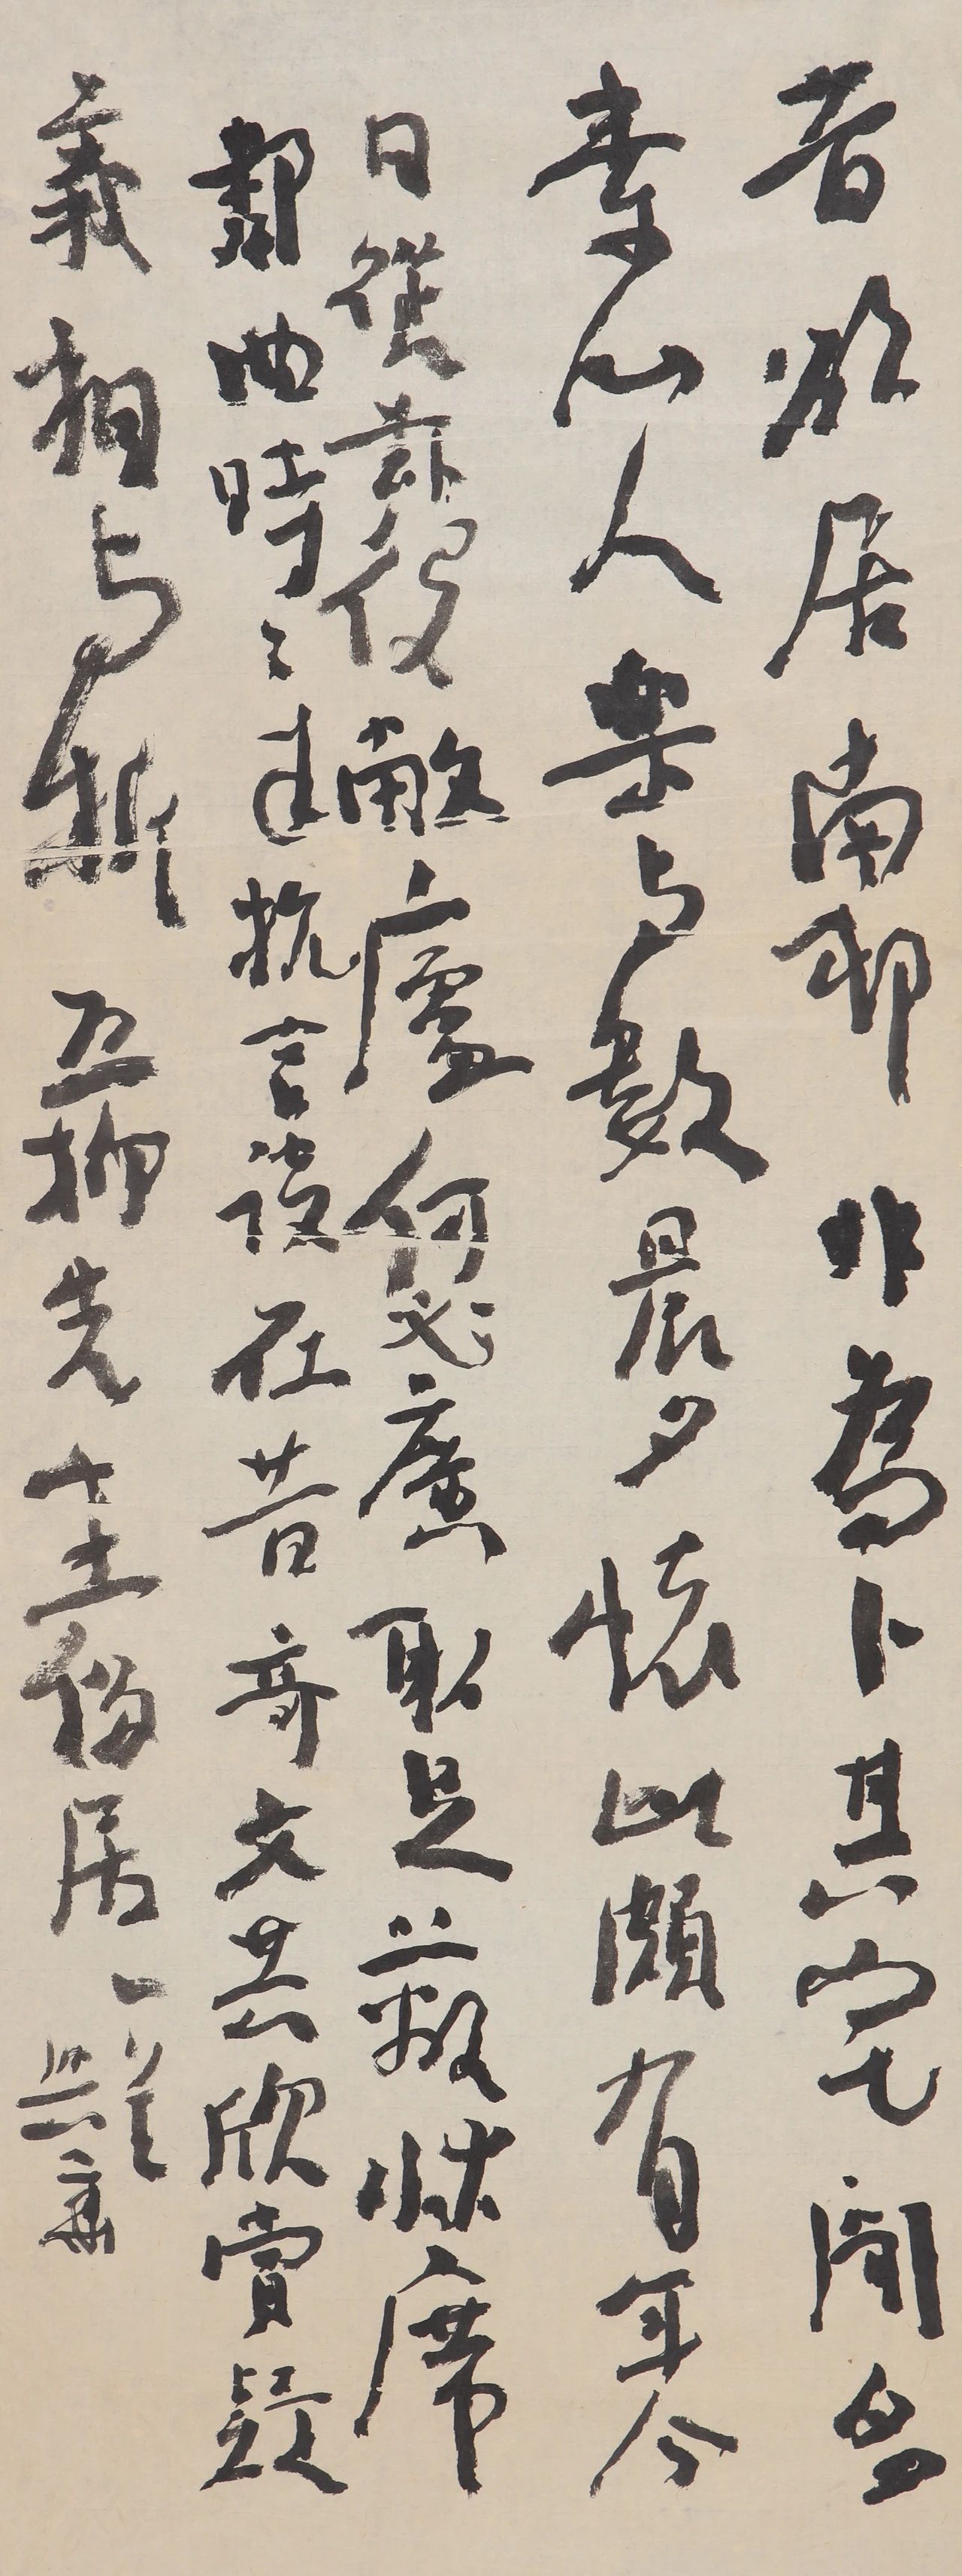 昔欲居南邨非為卜其宅聞多
素心人樂与數晨夕懷此頗有年今
日從茲役敝廬何必廣取足蔽牀席
鄰曲時〻來抗言談在昔奇文共欣賞疑
義相与析 五柳先生移居一首